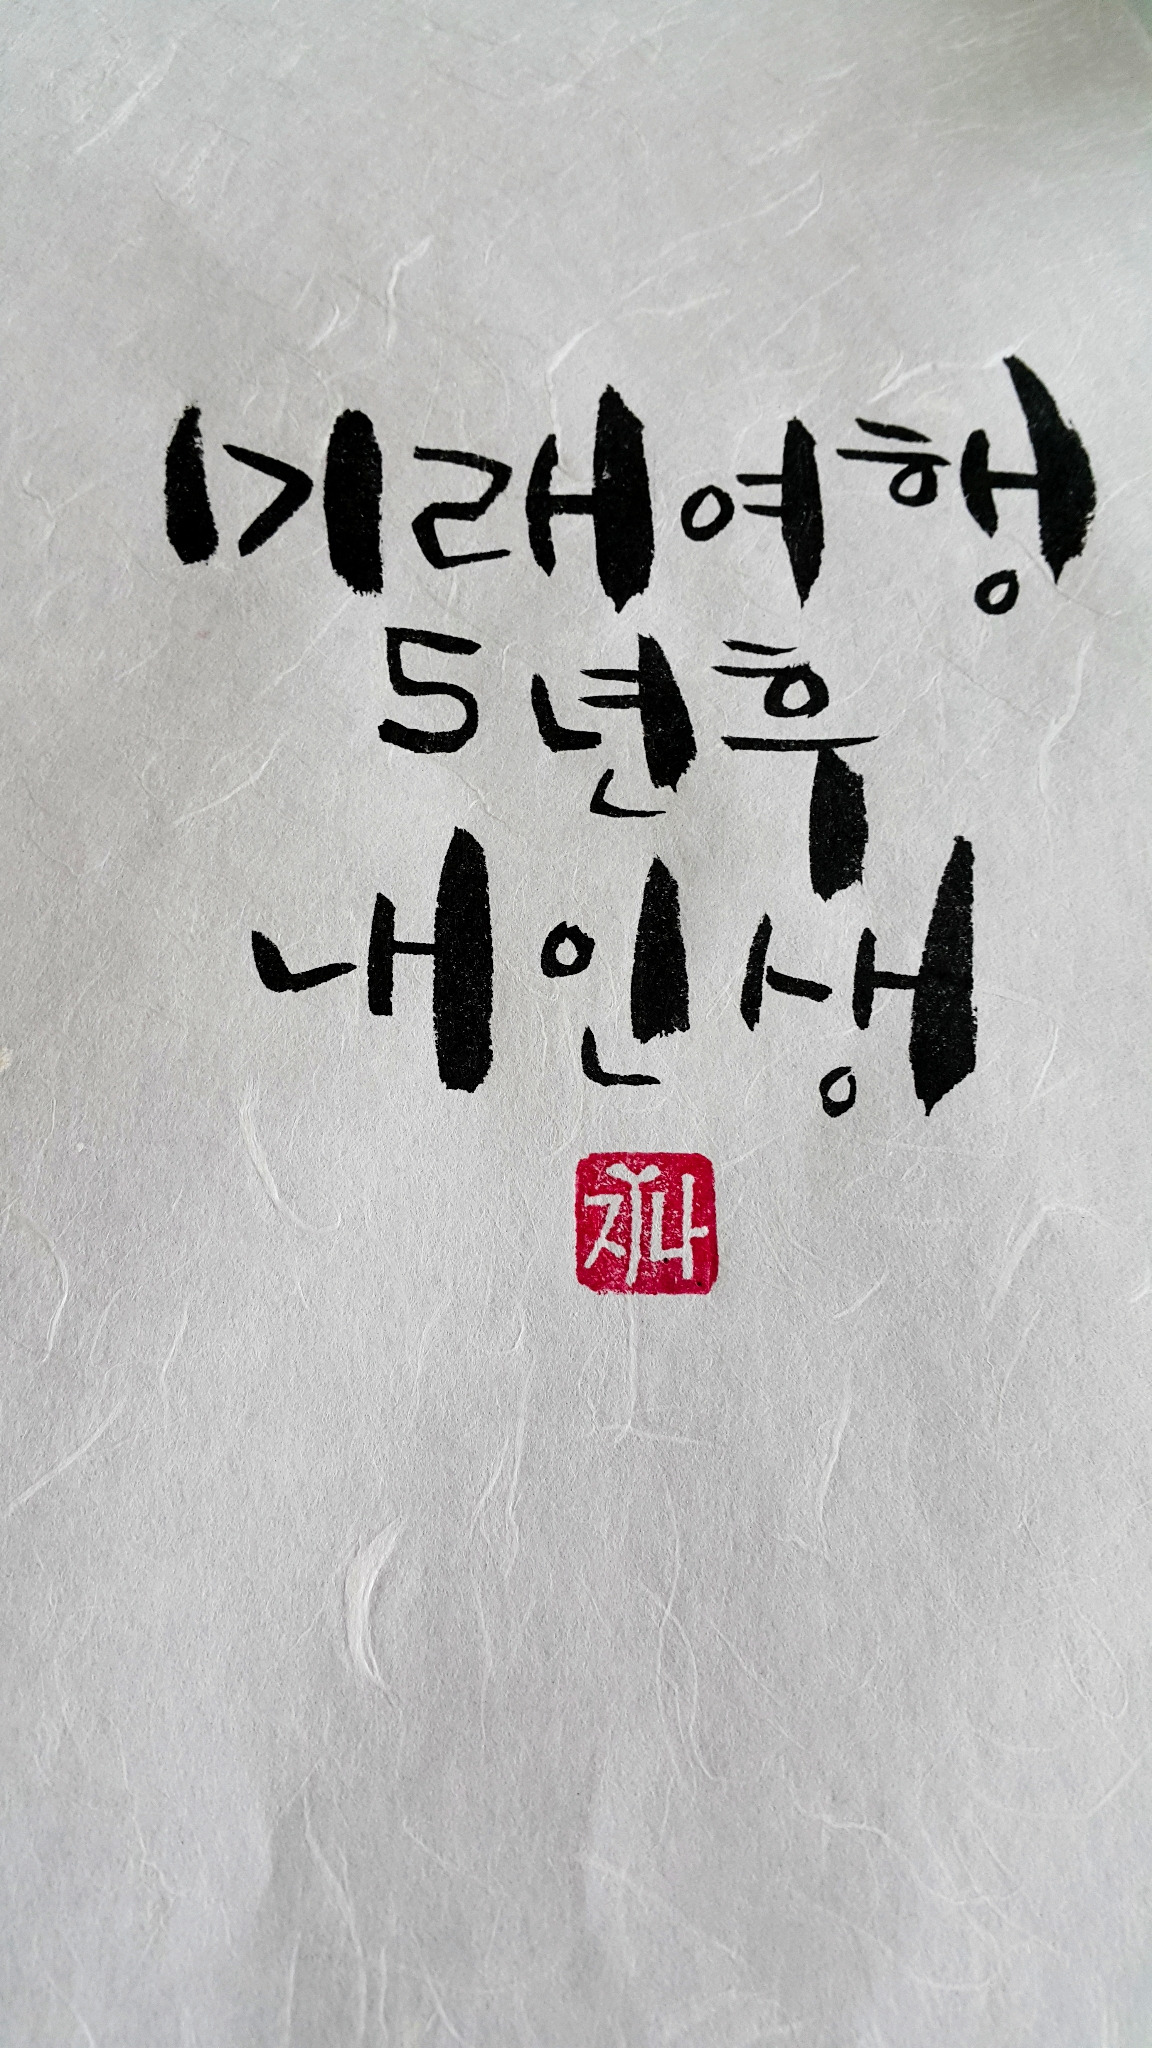 미래여행
5년후
내인생
지나